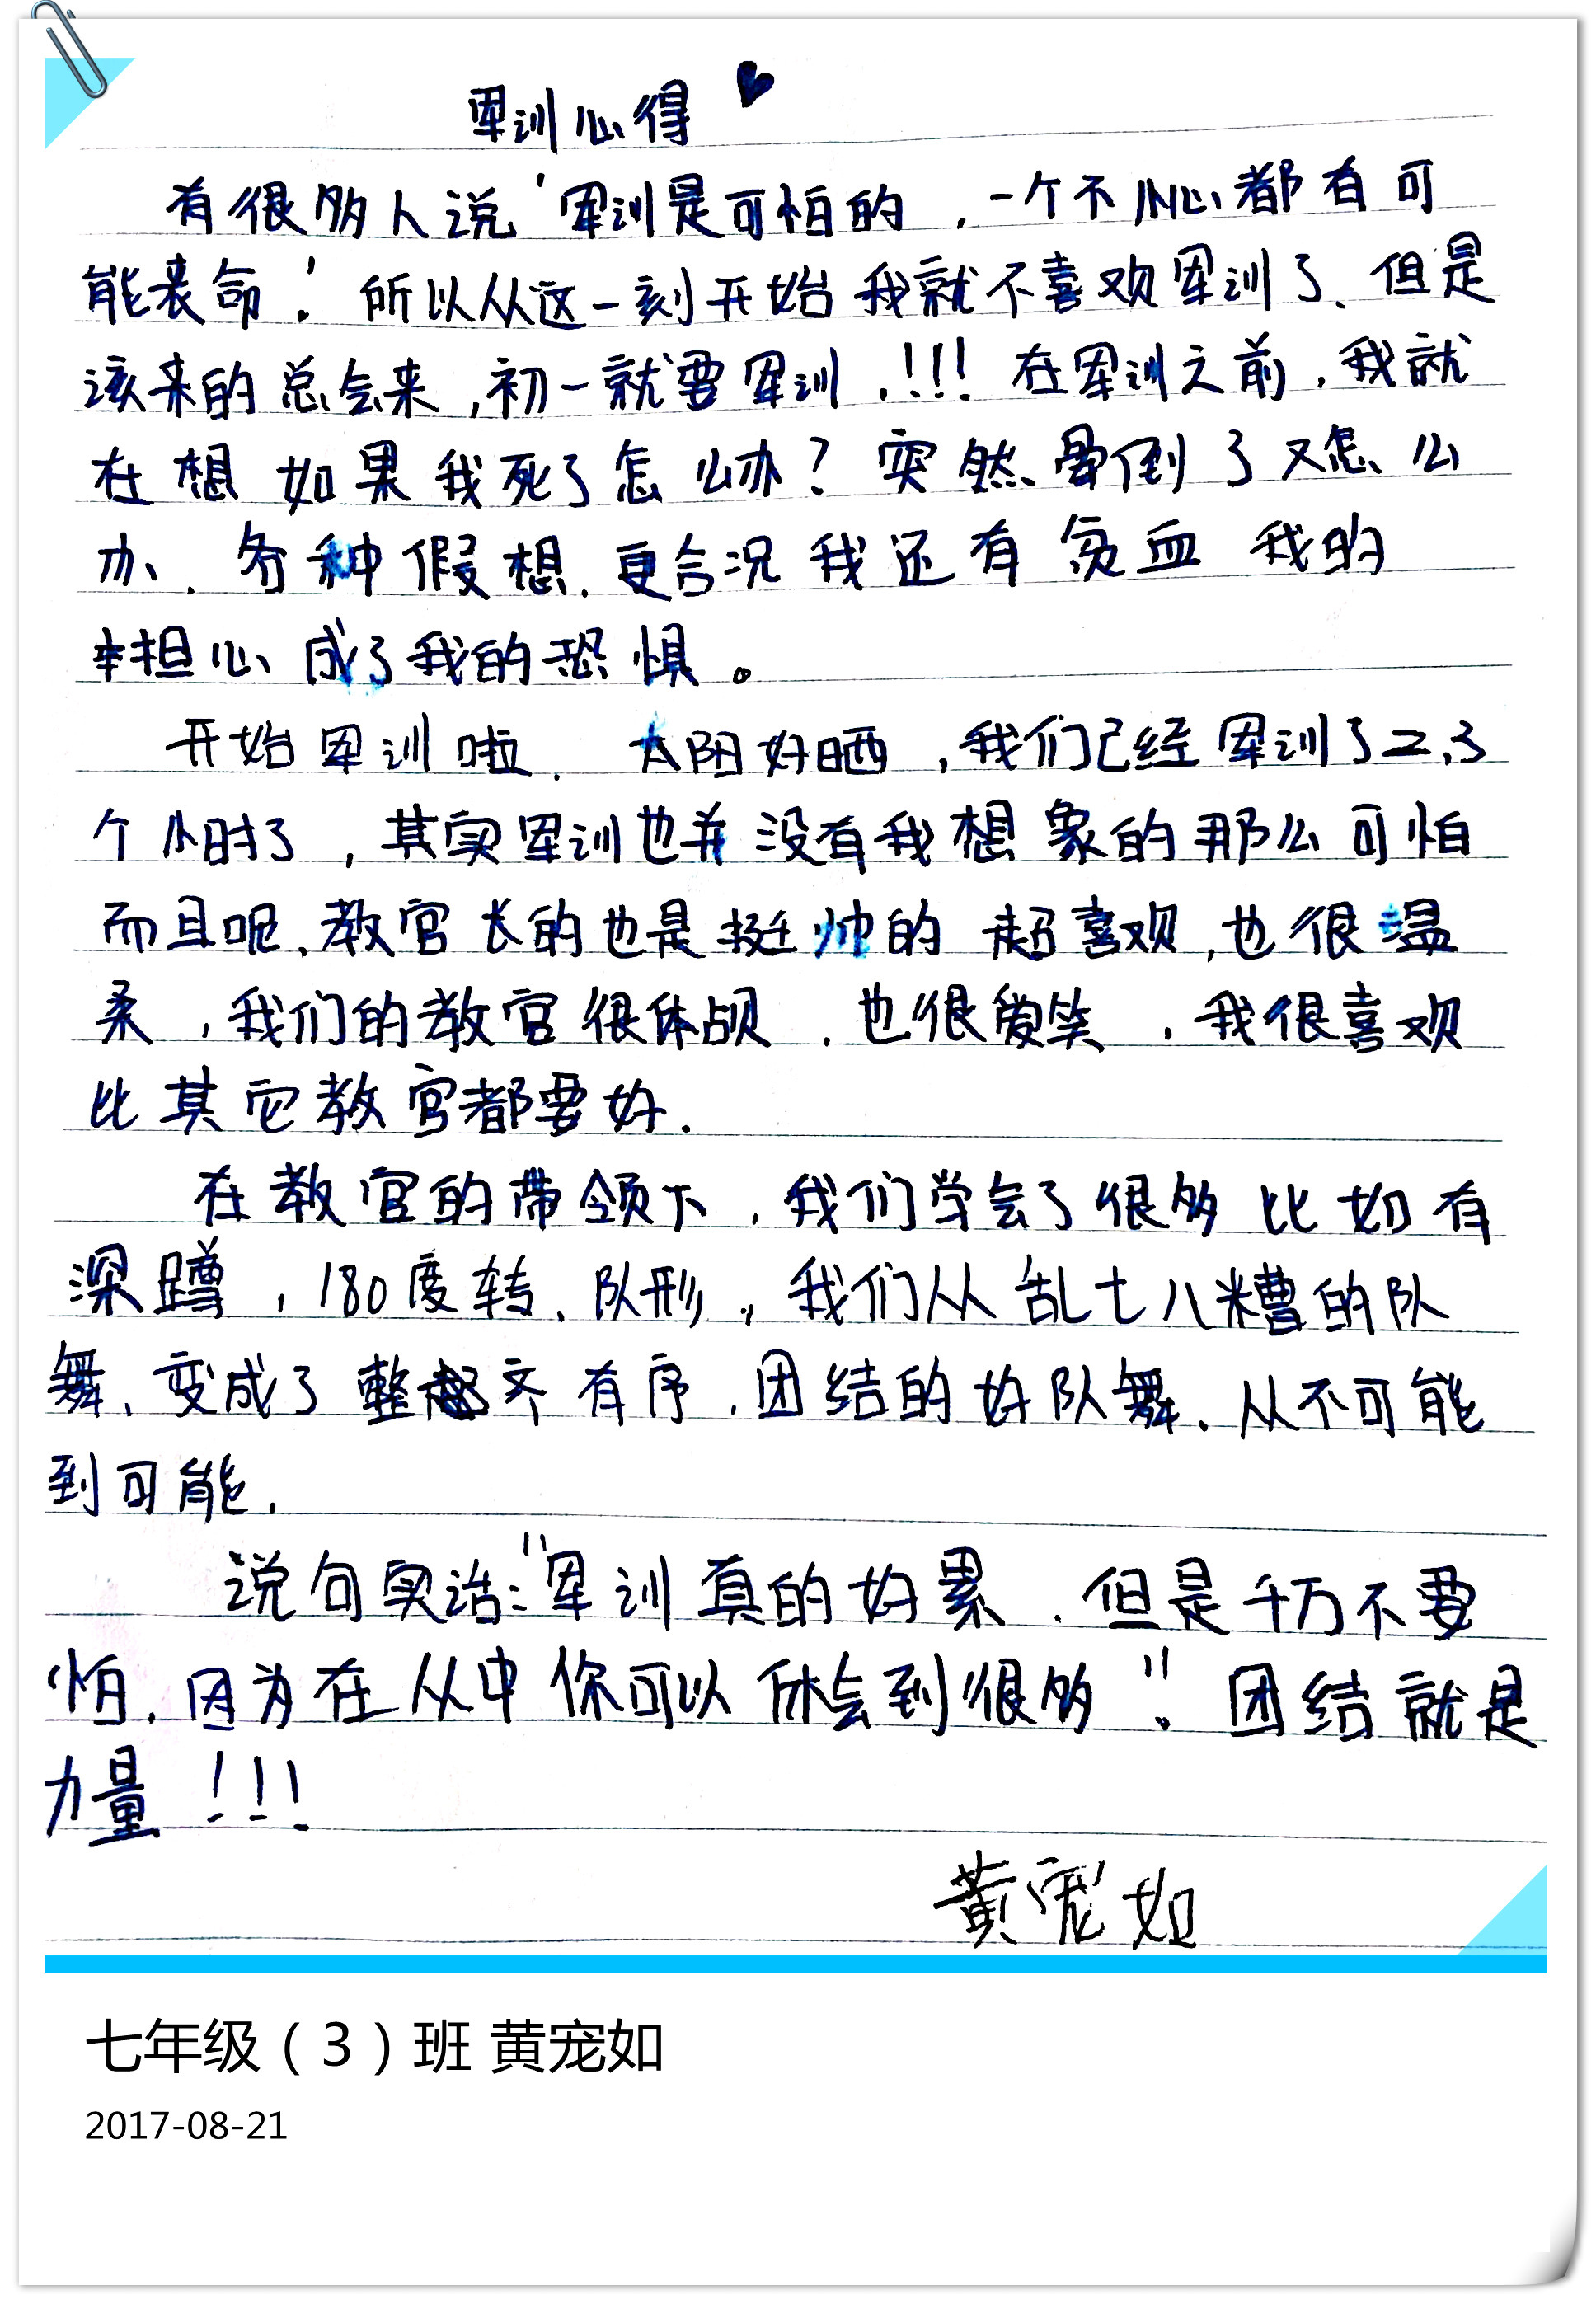 军训心得
有很多人说‘军训是可怕的，一个不小心都有可
能丧命！所以从这一刻开始我就不喜欢军训了、但是
该来的总会来，初一就要军训，!!!在军训之前，我就
在想如果我死了怎么办？突然晕倒了又怎么
办、各种假想．更合况我还有贫血我的
担心成了我的恐惧。
开始军训啦．太阳好晒，我们已经军训了2、3
个小时了，其实军训也并没有我想象的那么可怕
而且呢、教官长的也是挺帅的超喜欢，也很温
柔，我们的教官很体贴．也很爱笑，我很喜欢
比其它教官都要好．
在教官的带领下，我们学会了很多比如有
深蹲，180度转、队形，我们从乱七八糟的队
舞、变成了整齐有序．团结的好队舞、从不可能
到可能．
说句实话："军训真的好累．但是千万不要
怕．因为在从中你可以体会到很多"！团结就是
力量！！！
黄宠如
七年级（3）班 黄宠如
2017-08-21